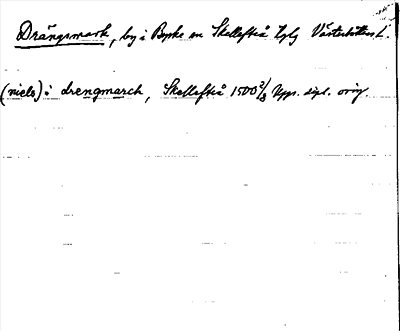 Drängsmark, by i Byske sn Skellefteå tgsl Västerbottens l.
(niels) i drengmarch, Skellefteå 1500 2/3 Upps. dipl. orig.